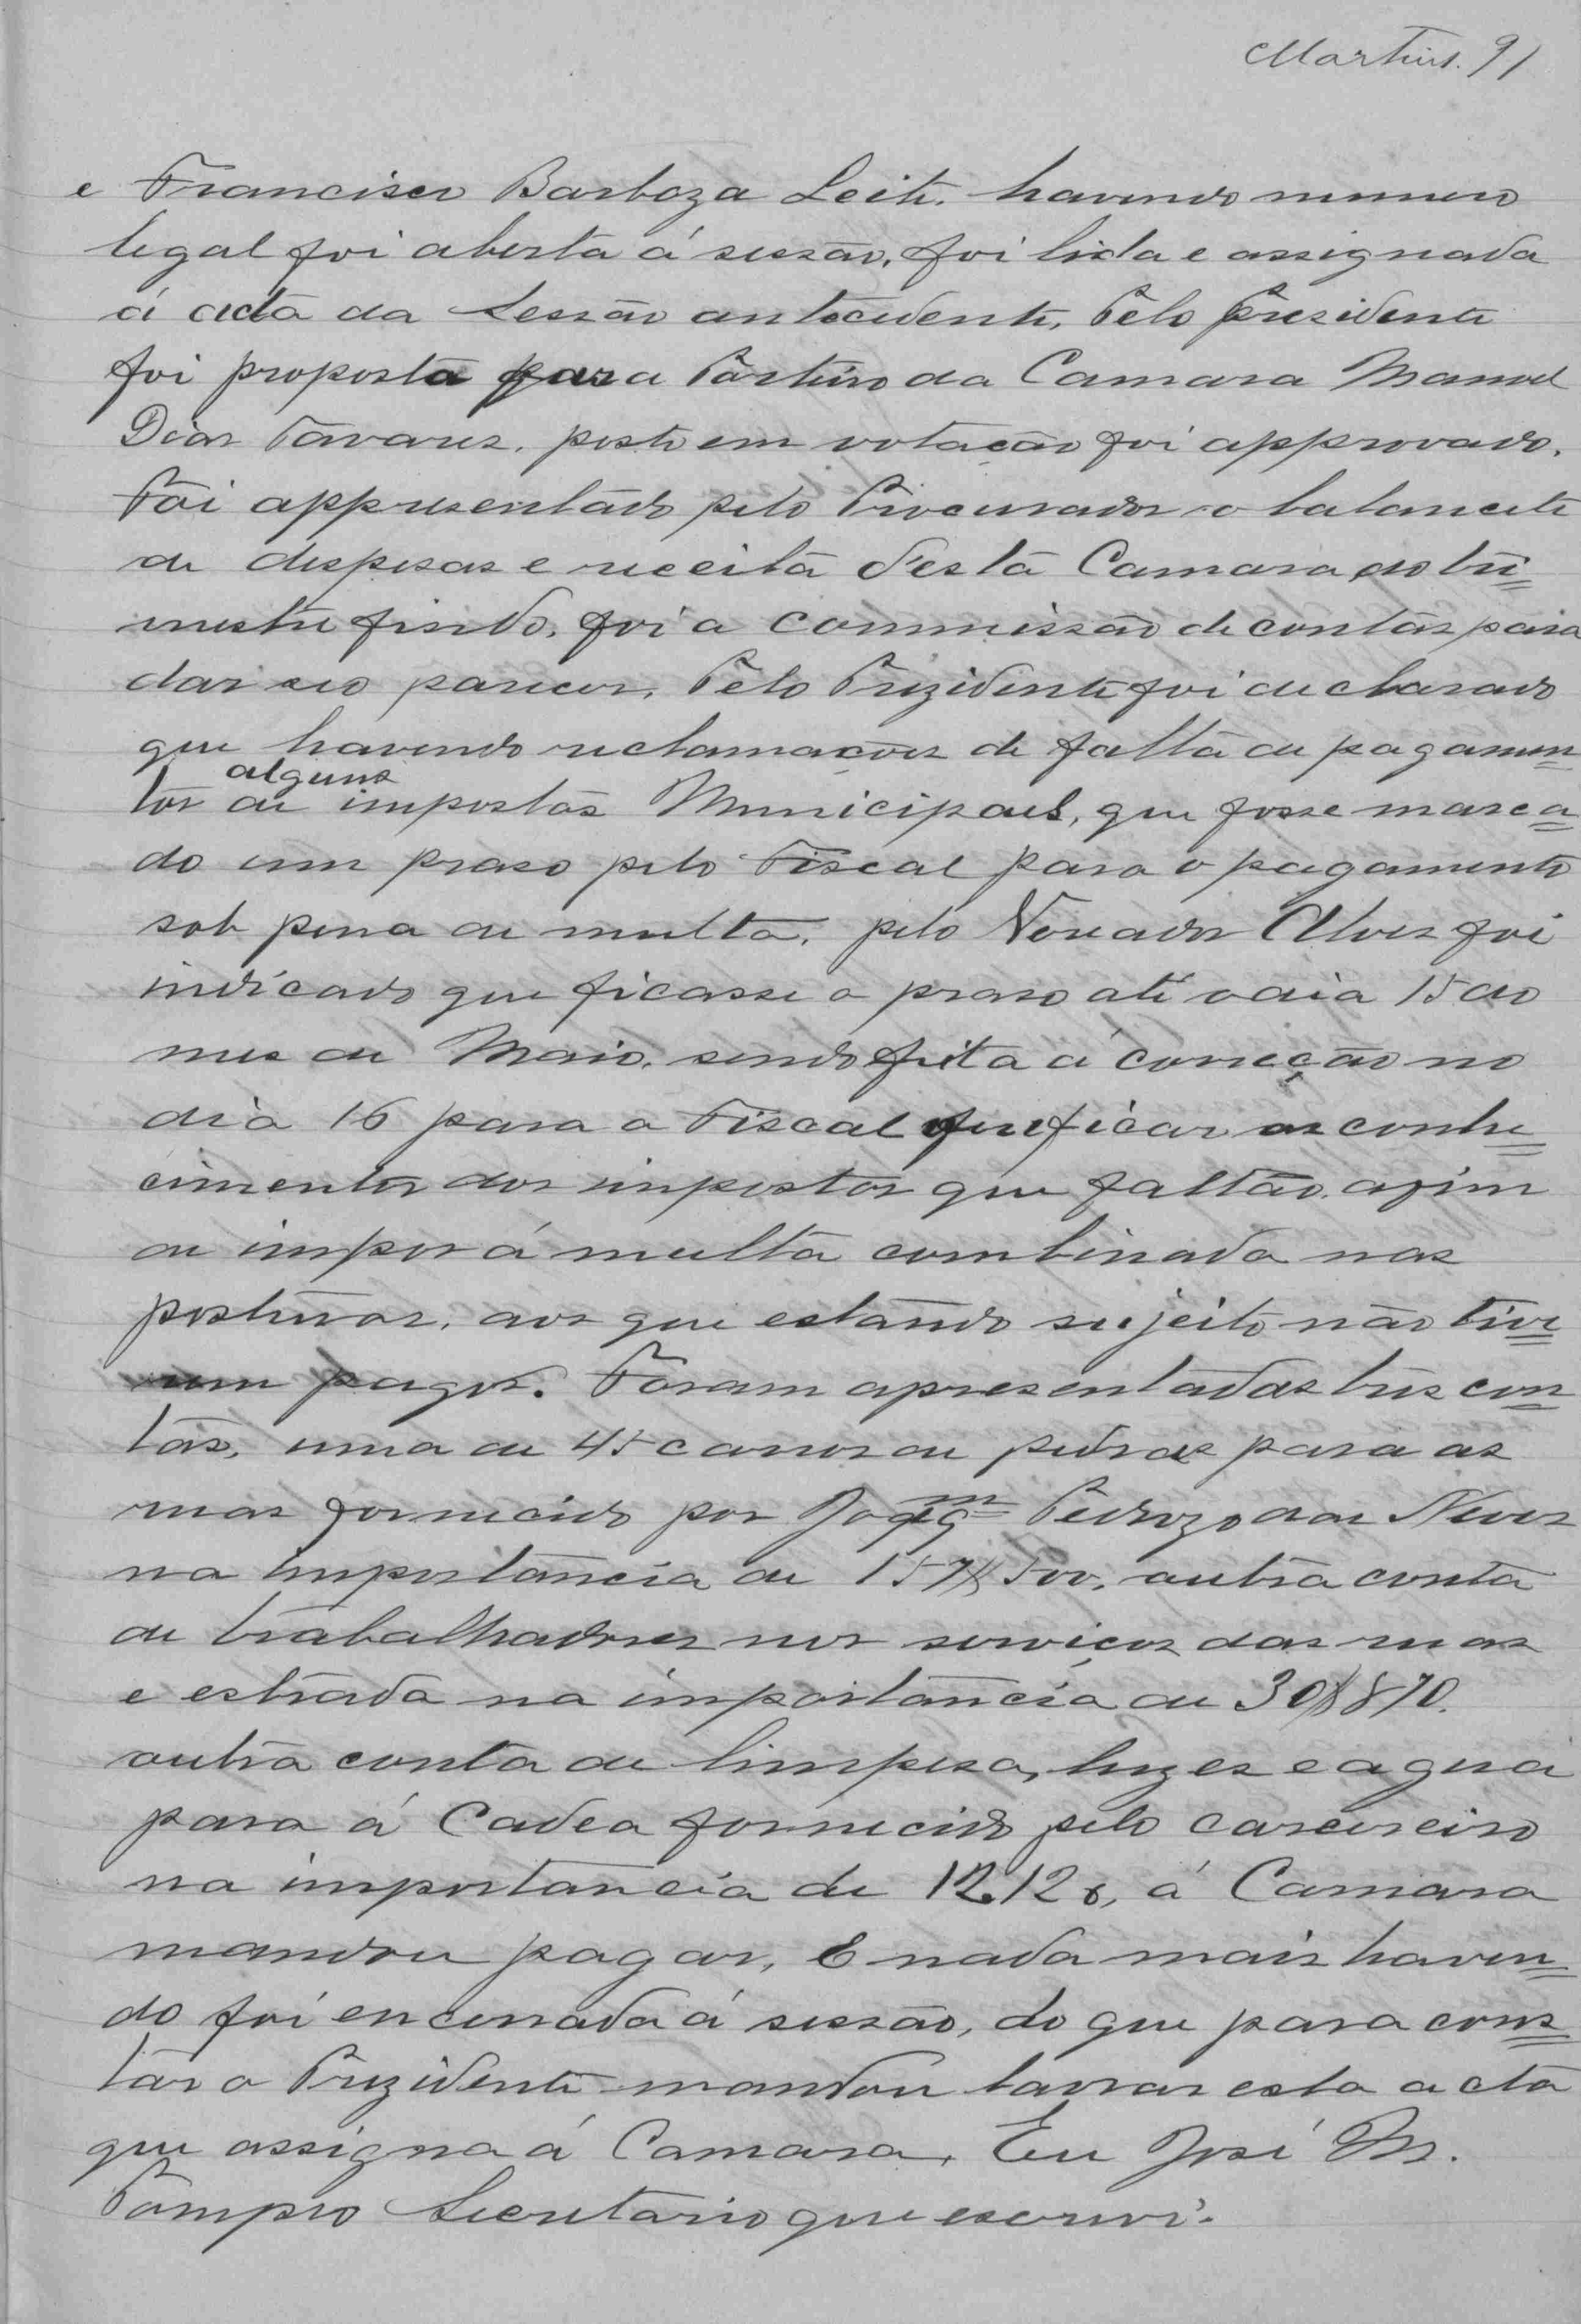 Martins. 91
e Francisco Barboza Leite. havendo numero
legal foi aberta á sessão, foi lida e assignada
á acta da sessão antecedente, Pelo Presidente
foi proposta para Porteiro da Camara Manoel
Dias Tavares, posto em votação foi approvado.
Foi appresentado pelo Procurador o balancete
de despesas e receita d'esta Camara do tri=
mestre findo, foi a commissão de contas para
dar seo parecer, Pelo Prezidente foi declarado
que havendo reclamações de falta de pagamen=
tos de alguns impostos Municipaes, que fosse marca=
do um praso pelo Fiscal para o pagamento
sob pena de multa, pelo Vereador Alves foi
indicado que ficasse o praso até o dia 15 do
mes de Maio, sendo feita á correcção no
dia 16 para o Fiscal verificar os conhe=
cimentos dos impostos que faltão, afim
de impor á multa combinada nas
posturas, aos que estando sujeito não tive=
rem pagos. Foram apresentadas tres con=
tas, uma de 45 carros de pedras para as
ruas fornecido por Joaqm Pedrozo das Neves
na importancia de 157$500, outra conta
de trabalhadores nos serviços das ruas
e estrada na importancia de 30$870.
outra conta de limpesa, luzes e agua
para á Cadea fornecido pelo carcereiro
na importancia de 12.120, á Camara
mandou pagar, E nada mais haven=
do foi encerrada á sessão, do que para cons=
tar o Prezidente mandou lavrar esta acta
que assigna á Camara, Eu José M.
Pompeo Secretario que escrevi.